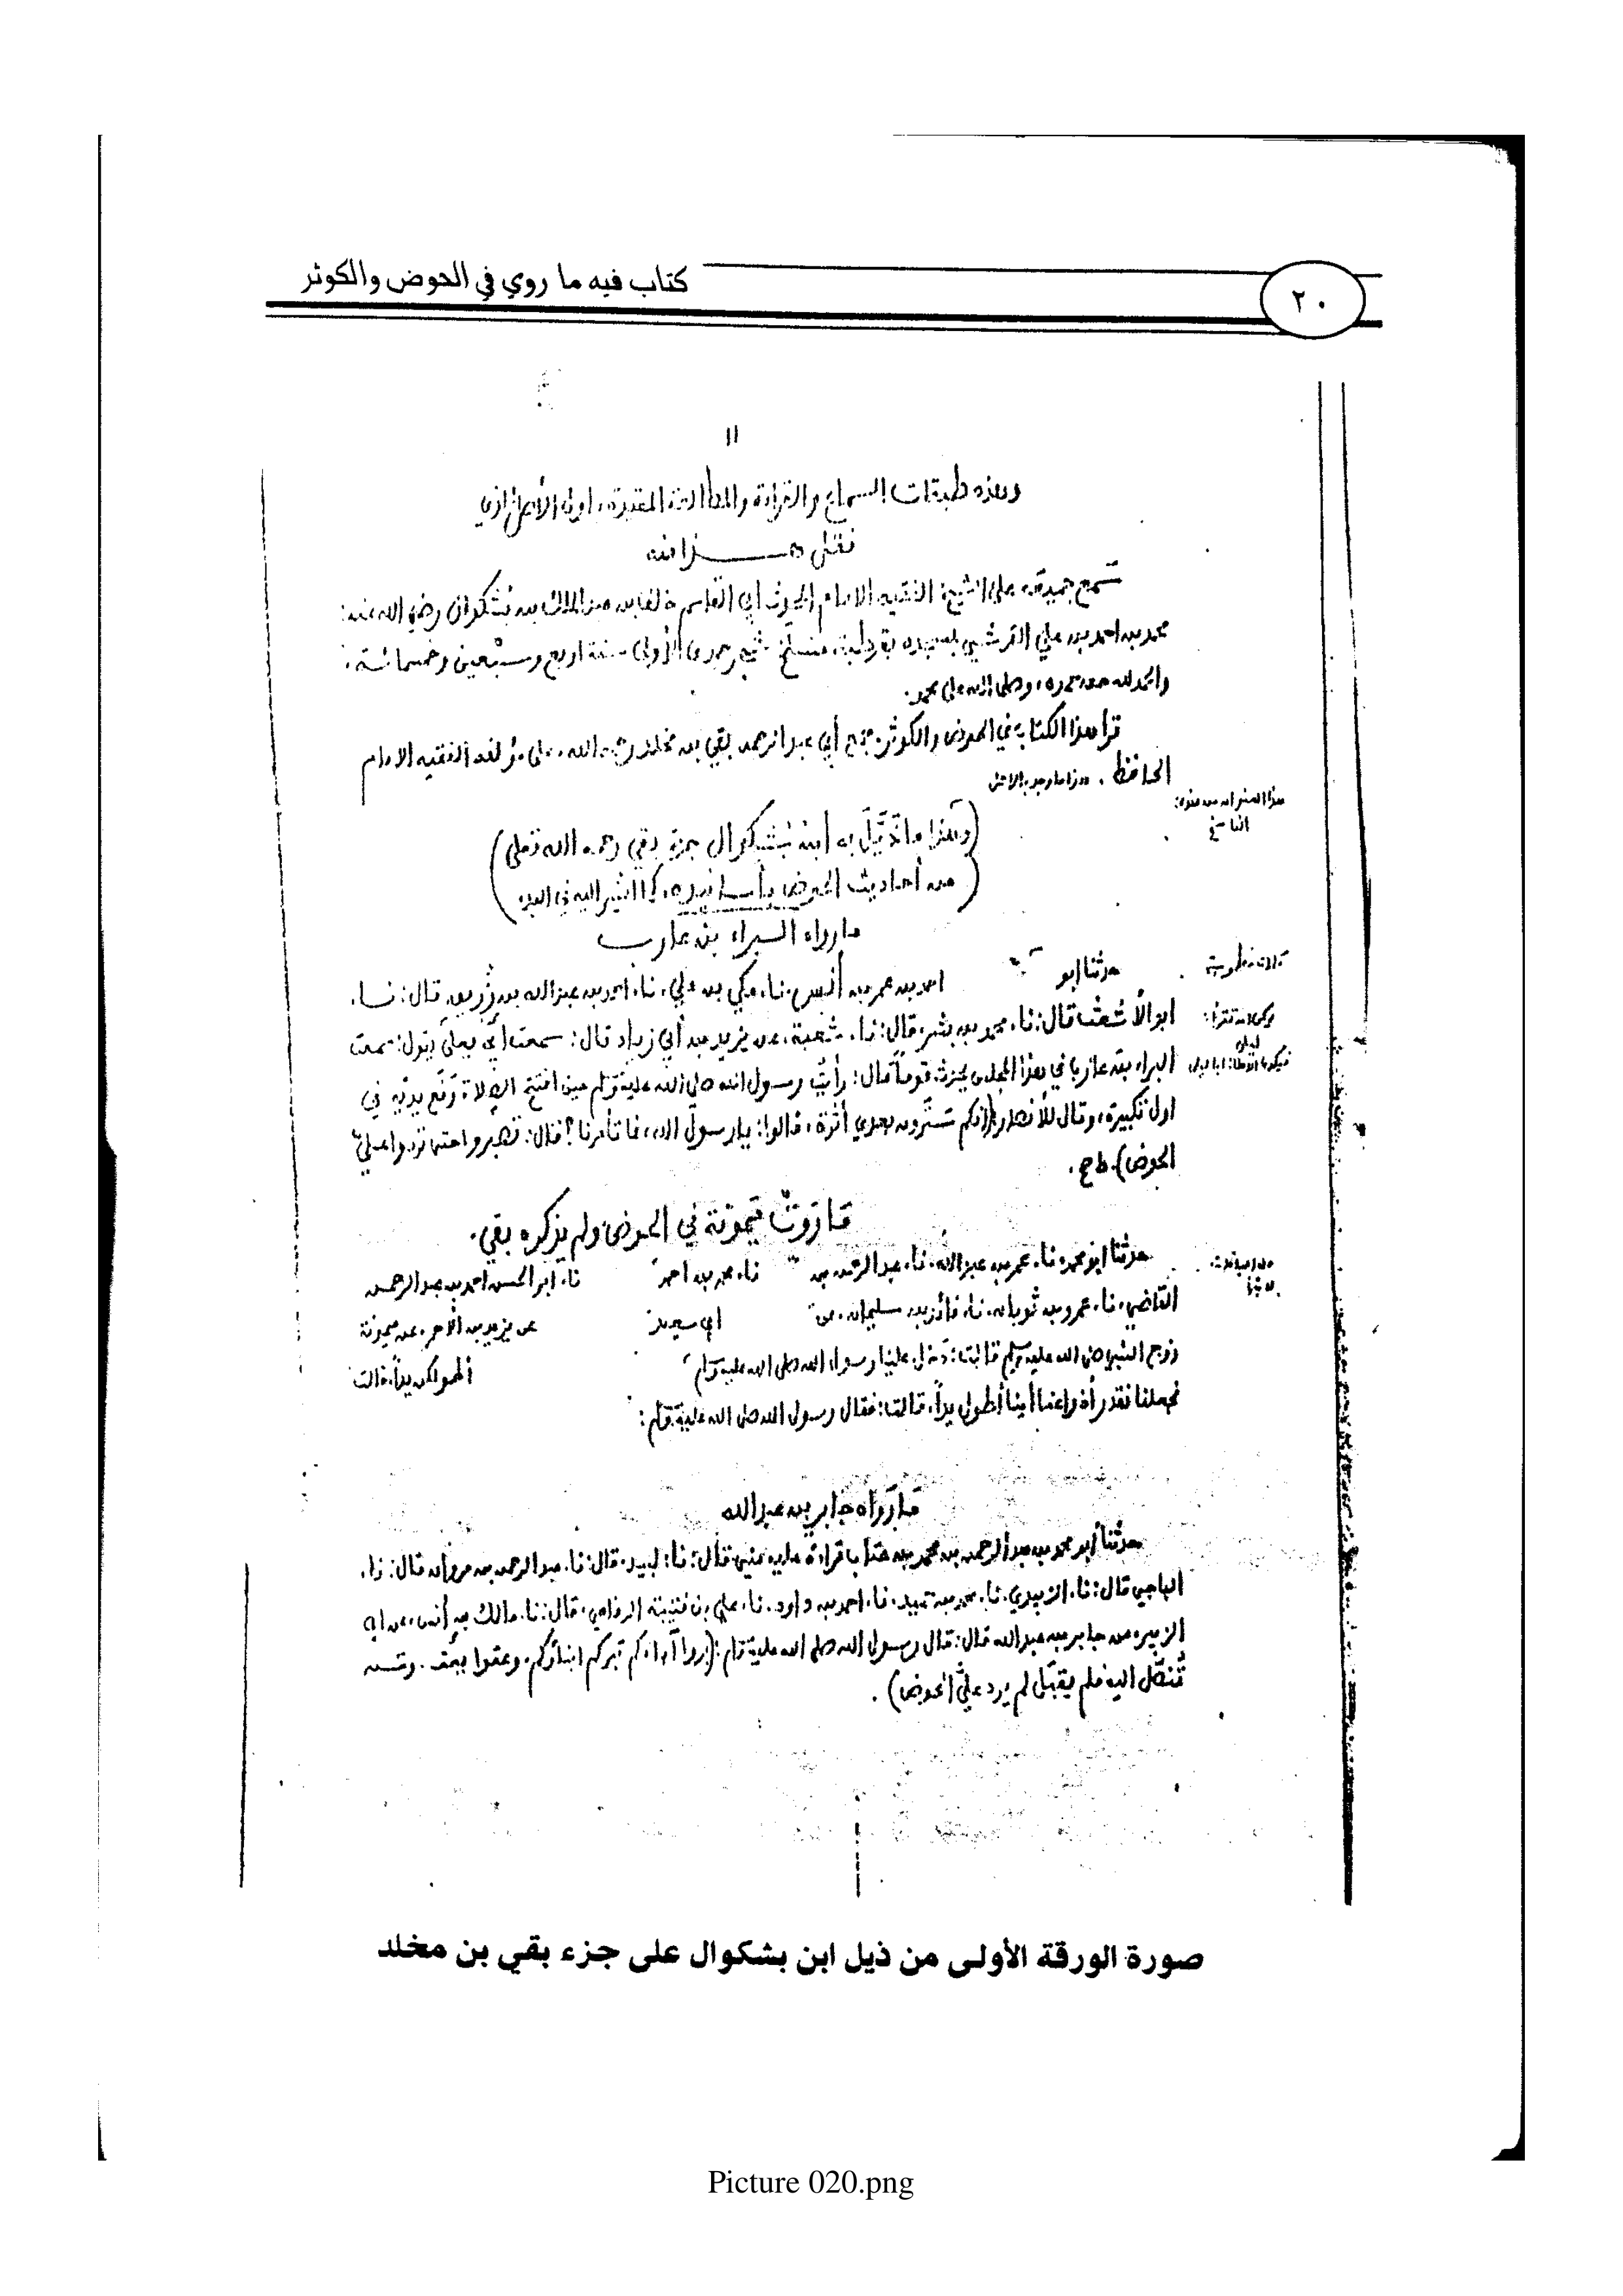 كتاب فيه ما روي في الحوض والكوثر
٢٠
١١
وهذه طبقات السماع والقراءة والمطالعة المقيدة
سمع جميعه على الشيخ الفقيه الإمام المحدث أبي القاسم خلف بن عبد الملك بن بشكوال رضي الله عنه:
محمد بن أحمد بن علي القرشي بمسجده بقرطبة، منسلخ شهر جمدى الأولى سنة اربع وسبعين وخمسمائة،
والحمد لله حق حمده، وصلى الله على محمد.
قرأ هذا الكتاب في الحوض والكوثر، جمع أبي عبد الرحمن بقي بن مخلد رحمه الله، على مؤلفه الفقيه الامام
الحافظ. هذا ما وجد بالاصل
هذا العنوان من عندي:
الناسخ
(وهذا ما ذَيَّلَ به ابن بَشْكوال جزء بقي رحمه الله تعالى)
(من أحاديث الحوض بأسانيده، كما أشير اليه في البدء)
ما رواه البراء بن عازب
حدثنا ابو
احمد بن عمر بن أنس، نا، مكي بن علي، نا، احمد بن عبد الله بن زُرَيق قال: نا،
ابو الأشعث قال: نا، محمد بن بشر، قال: نا، شعبة، عن يزيد بن أبي زياد قال: سمعت ابن ابي ليلى يقول: سمعت
البراء بن عازب في هذا المجلس يحدث قوماً قال: رأيت رسول الله صلى الله عليه وسلم حين افتتح الصلاة رفع يديه في
اول تكبيرة، وقال للأنصار: (إنكم سترون بعدي أثرة، قالوا: يا رسول الله، فما تأمرنا؟ قال: تصبروا حتى تردوا عليَّ
الحوض). ط ح.
ما رَوَتْ مَيمونة في الحوض ولم يذكره بقي.
حدثنا ابو محمد، نا، عمر بن عبيد الله، نا، عبد الرحمن بن
نا، محمد بن احمد
نا، ابو الحسن احمد بن عبد الرحمن
القاضي، نا، عمرو بن ثوبان، نا، فائز بن سليمان، عن
ابي سعيد
عن يزيد بن الأحمر، عن ميمونة
زوج النبي صلى الله عليه وسلم قالت: دخل علينا رسول الله صلى الله عليه وسلم،
أطولكن يداً، قالت:
فجعلنا نقدر أذراعنا أينا أطول يداً، قالت: فقال رسول الله صلى الله عليه وسلم:
ما رَوَاه جابر بن عبد الله
حدثنا أبو محمد بن عبد الرحمن بن محمد بن عتاب قراءة عليه مني قال: نا، لبيد، قال: نا، عبد الرحمن بن مروان قال: نا،
الباجي قال: نا، الزبيدي، نا، محمد بن تميم، نا، احمد بن داود، نا، علي بن قتيبة الرفاعي، قال: نا، مالك بن أنس، عن ابي
الزبير، عن جابر بن عبد الله قال: قال رسول الله صلى الله عليه وسلم: (بروا آباءكم تبركم ابناؤكم، وعفوا
تُنُصِّل اليه فلم يقبل لم يرد عليَّ الحوض).
صورة الورقة الأولى من ذيل ابن بشكوال على جزء بقي بن مخلد
Picture 020.png